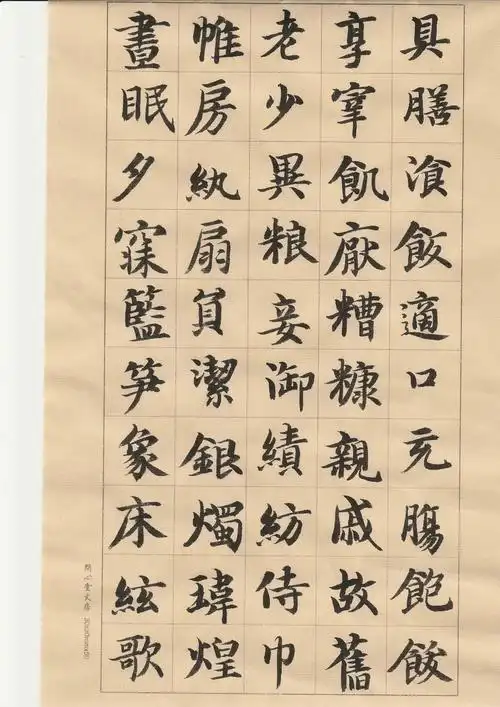 具膳湌飯適口充膓飽飫
享宰飢厭糟糠親戚故舊
老少異粮妾御績紡侍巾
帷房紈扇員潔銀燭瑋煌
晝眠夕寐籃笋象床絃歌